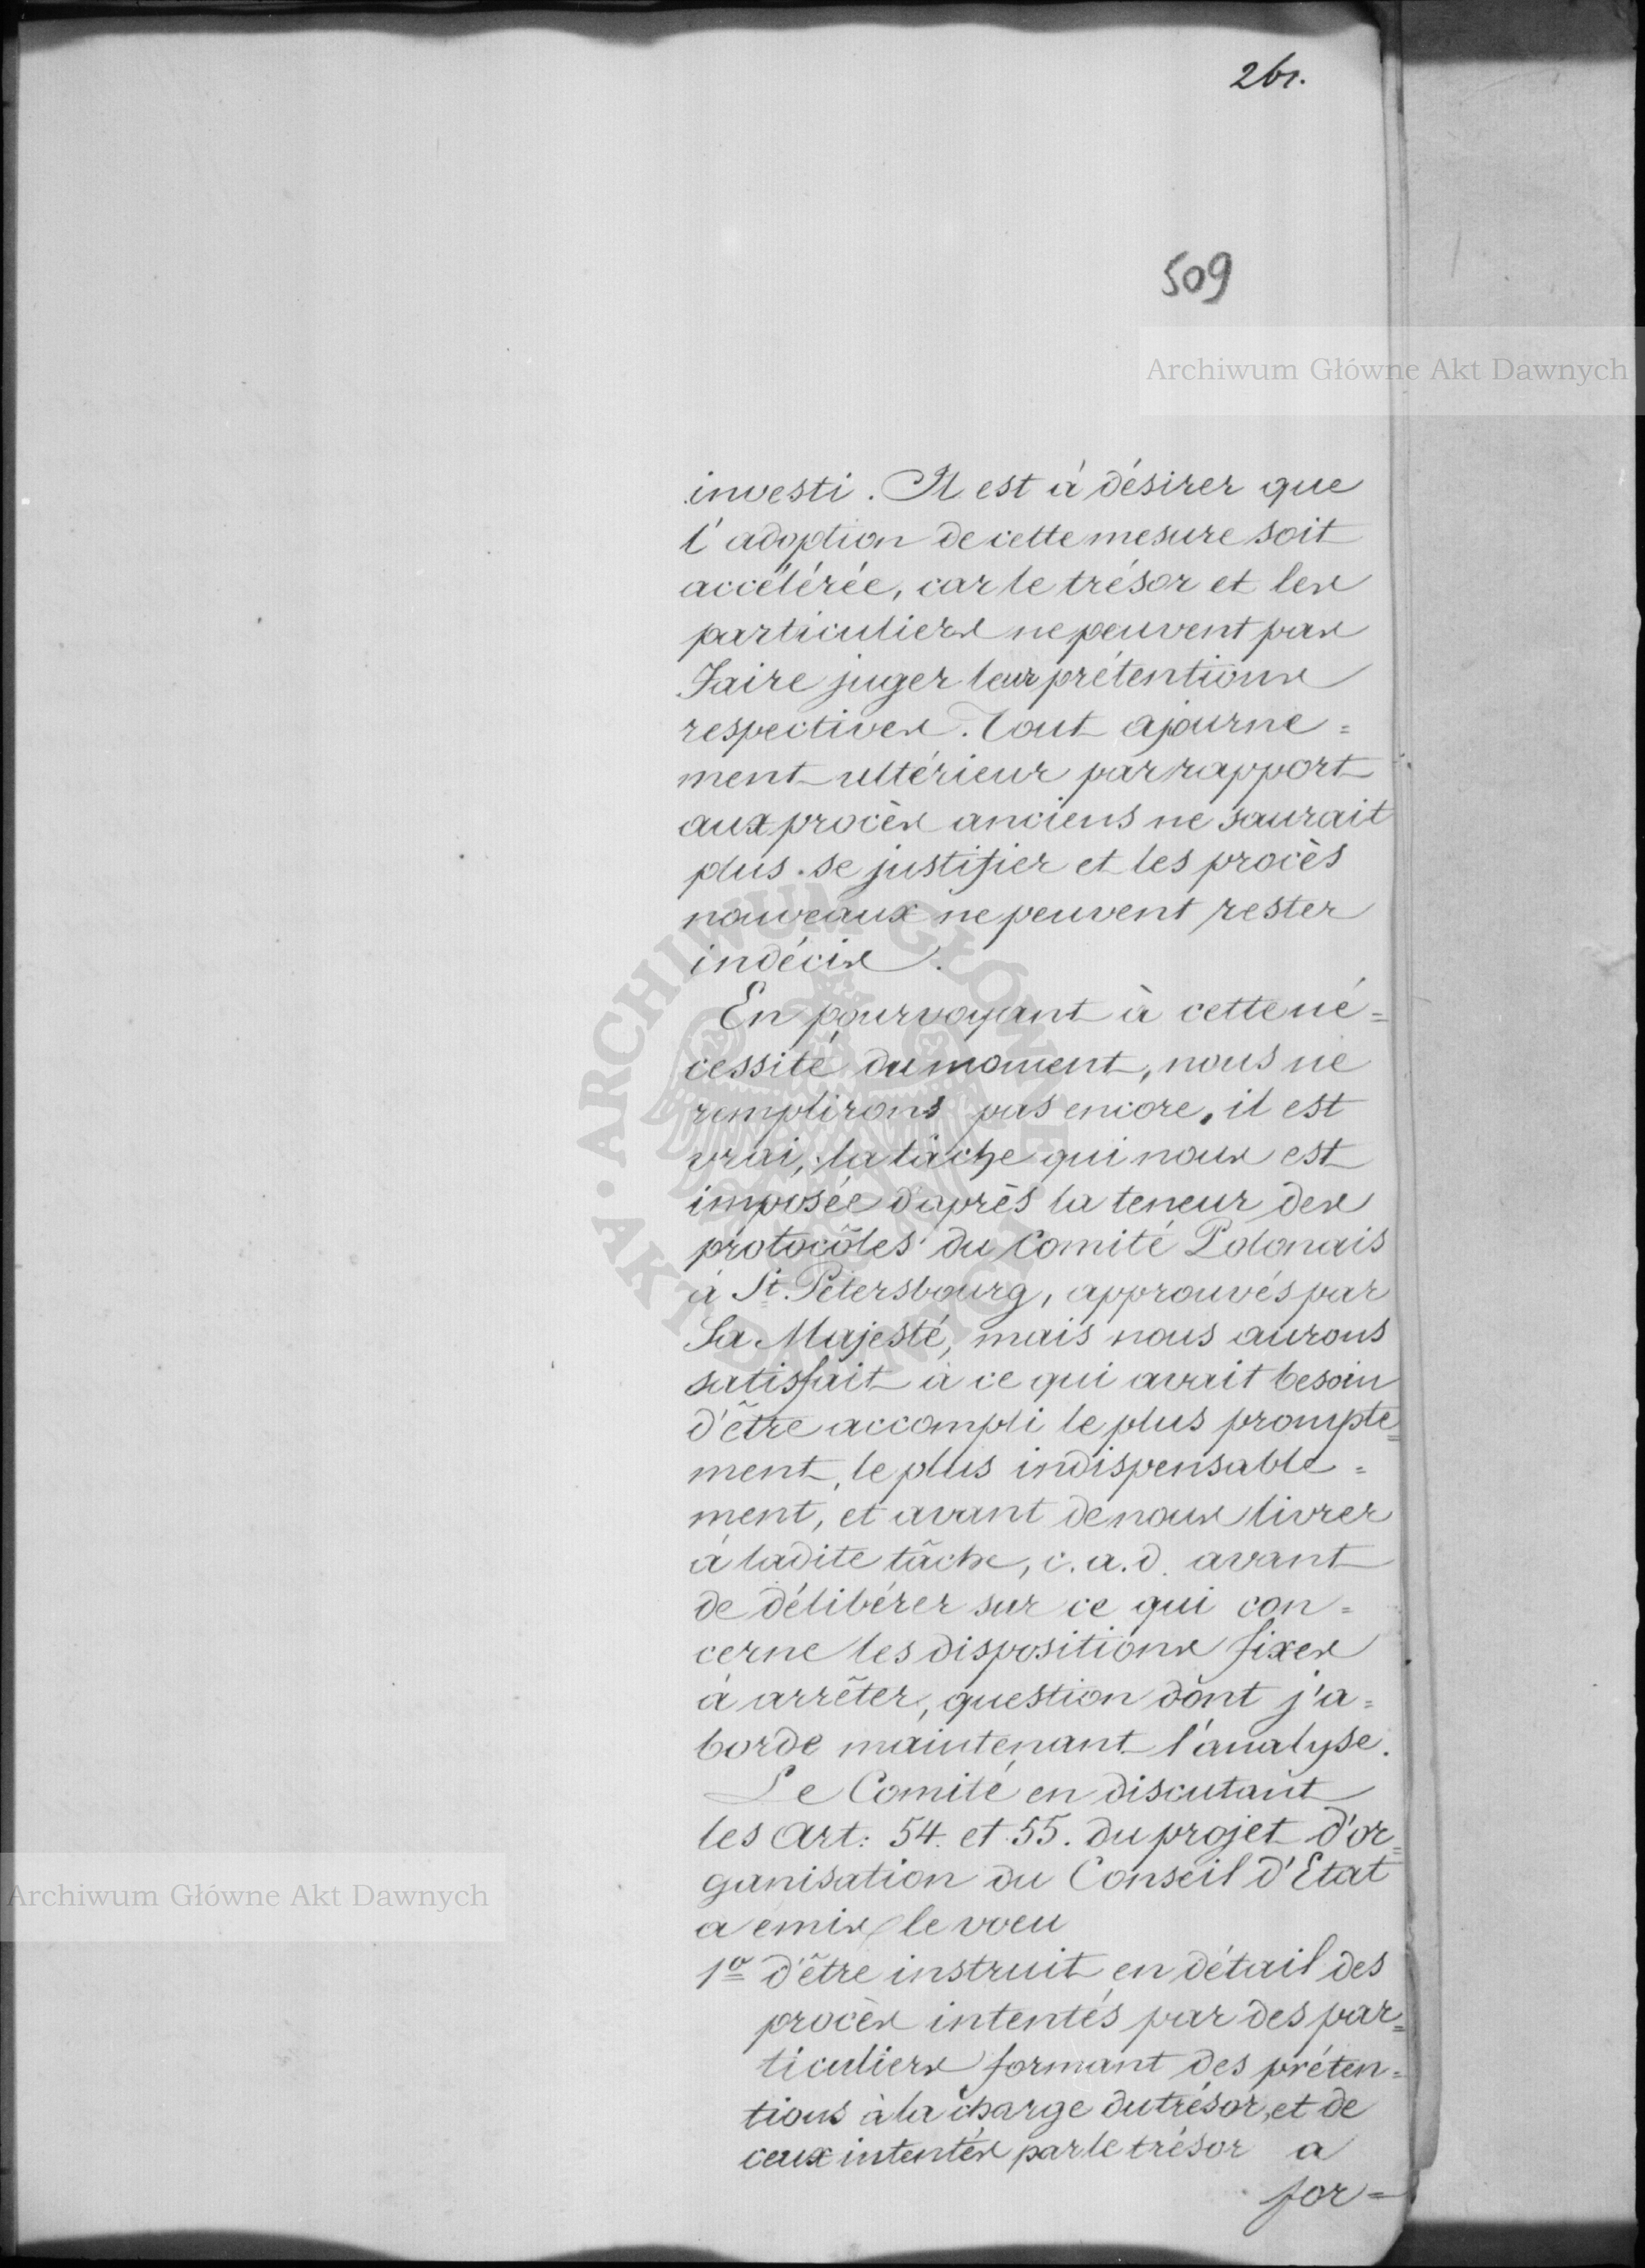 261.
509
Archiwum Główne Akt Dawnych
investi. Il est à désirer que
l'adoption de cette mesure soit
accélérée, car le trésor et les
particuliers ne peuvent pas
faire juger leur prétentions
respectives. Tout ajourne=
ment ultérieur par rapport
aux procès anciens ne saurait
plus se justifier et les procès
nouveaux ne peuvent rester
indécis.
En pourvoyant à cette né=
cessité du moment, nous ne
remplirons pas encore, il est
vrai, la tâche qui nous est
imposée d'après la teneur des
protocôles du Comité Polonais
à St. Pétersbourg, approuvés par
Sa Majesté, mais nous aurons
satisfait à ce qui avait besoin
d'être accompli le plus prompte=
ment, le plus indispensable=
ment, et avant de nous livrer
à ladite tâche, c.a.d. avant
de délibérer sur ce qui con=
cerne les dispositions fixes
à arrêter, question dont j'a=
borde maintenant l'analyse.
Le Comité en discutant
les Art: 54. et 55. du projet d'or=
ganisation du Conseil d'Etat
Archiwum Główne Akt Dawnych
a émis le voeu
1o d'être instruit en détail des
procès intentés par des par=
ticuliers formant des préten=
tions à la charge du trésor, et de
ceux intentés par le trésor a
for=
ARCHIWUM GŁÓWNE AKT DAWNYCH